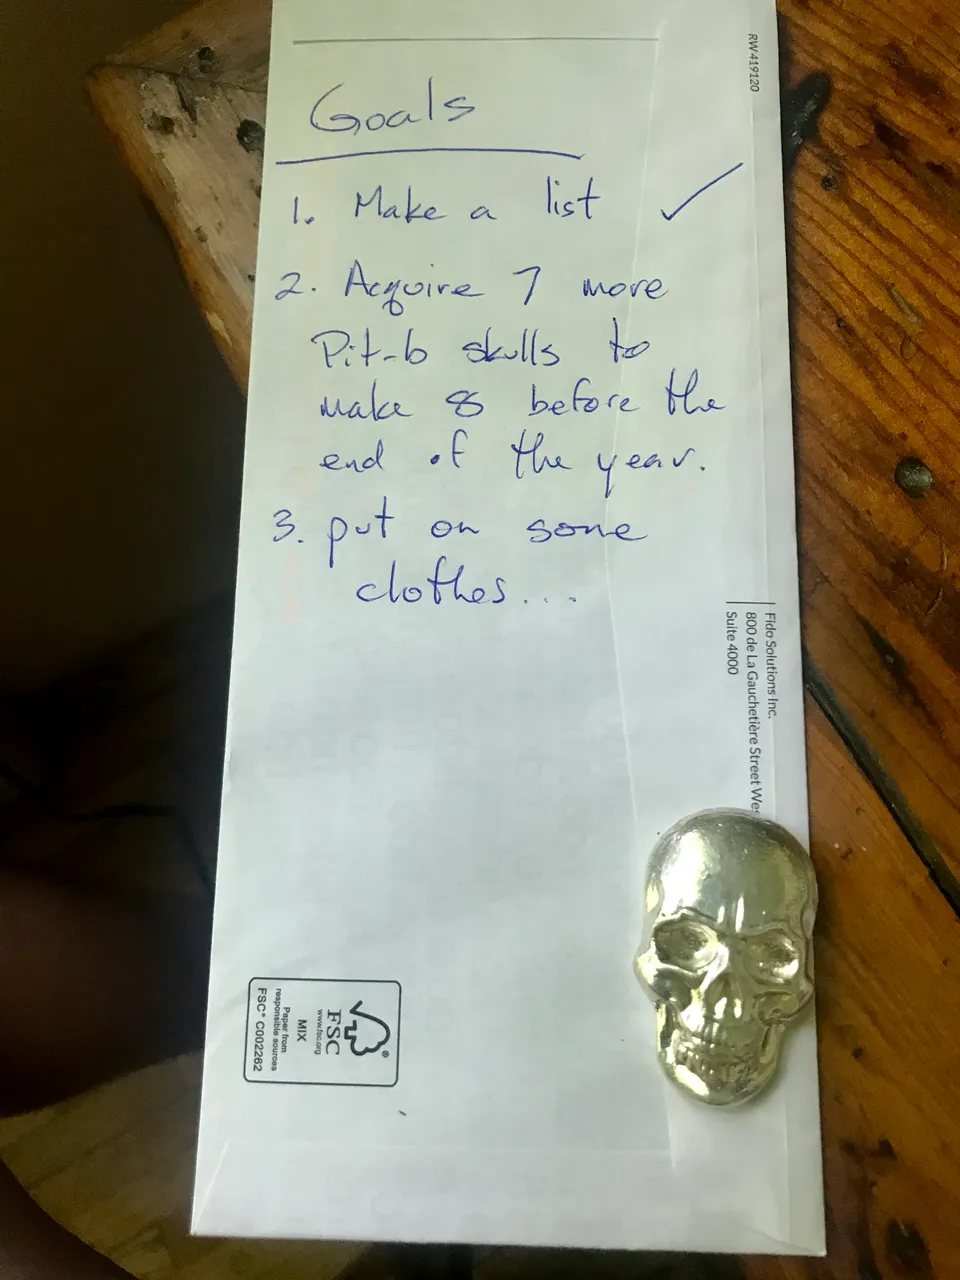 Goals
1. Make a list ✓
2. Acquire 7 more
Pit-b skulls to
make 8 before the
end of the year.
3. put on some
clothes...
RW419120
Fido Solutions Inc.
800 de La Gauchetière Street Wes
Suite 4000
FSC
www.fsc.org
MIX
Paper from
responsible sources
FSC® C002262